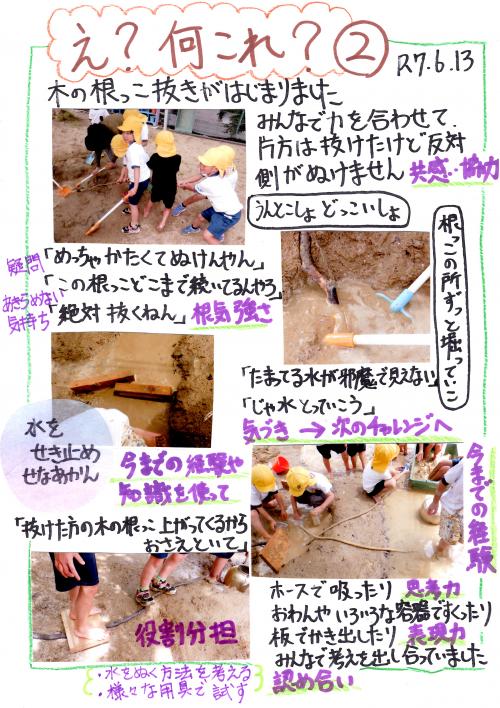 え？何これ？②
R7.6.13
木の根っこ抜きがはじまりました
みんなで力を合わせて、
片方は抜けたけど反対
側がぬけません 共感・協力
うんとこしょ どっこいしょ
根っこの所ずっと堀っていこ
疑問
「めっちゃかたくてぬけんやん」
「この根っこどこまで続いてるんやろ」
あきらめない
気持ち
「絶対抜くねん」 根気強さ
「たまてる水が邪魔で見えない」
「じゃ水とっていこう」
気づき → 次のチャレンジへ
水を
せき止め
せなあかん
今までの経験や
知識を使って
今までの経験
「抜けた方の木の根っこ上がってくるから
おさえといて」
役割分担
ホースで吸ったり 思考力
おわんやいろいろな容器ですくったり
板でかき出したり 表現力
みんなで考えを出し合っていました
認め合い
・水をぬく方法を考える
・様々な用具で試す